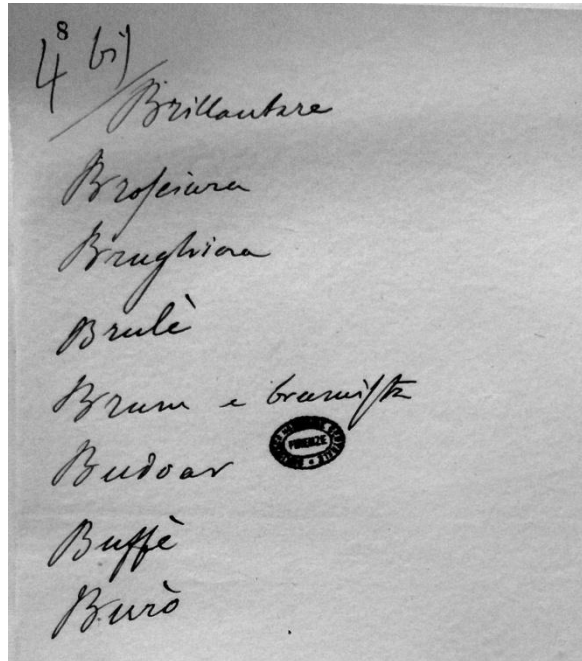 48 bis
Brillantare
Brosciura
Brughiera
Brulè
Brum e brumista
FIRENZE
Budoar
Buffè
Burò